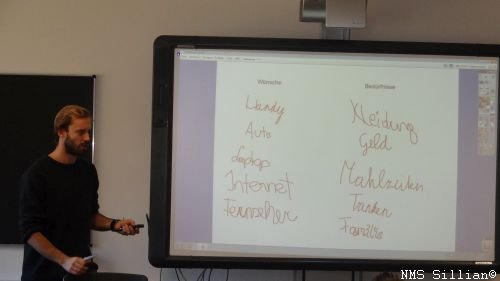 Wünsche
Handy
Auto
Laptop
Internet
Fernseher
Bedürfnisse
Kleidung
Geld
Mahlzeiten
Trinken
Familie
NMS Sillian©